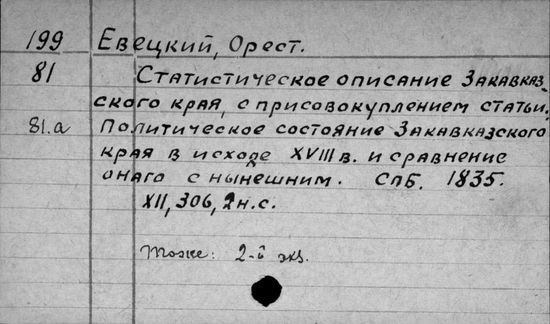 199 Евецкий, Орест.
81 Статистическое описание Закавказ-
ского края, с присовокуплением статьи.
81.а Политическое состояние Закавказского
края в исходе XVIII в. и сравнение
онаго с нынешним. Спб. 1835.
XII, 306, 2 н.с.
Тоже: 2-й экз.